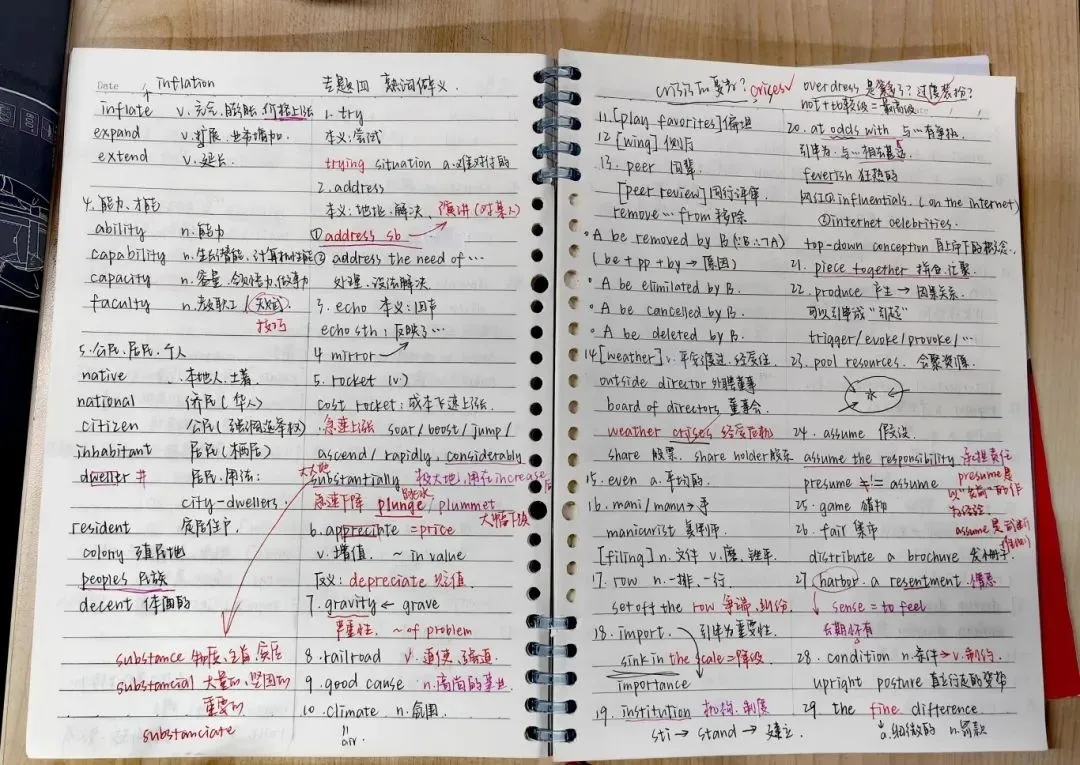 Date
inflation
inflate v. 充气、膨胀、价格上涨
expand v.扩展、业务增加.
extend v.延长.
4.能力、才能
ability n.能力
capability n.生and潜能、计算机性能
capacity n.容量、领悟力,做事力
faculty n.教职工(天赋)
技巧
5.公民、居民、个人
native .本地人、土著.
national 侨民(华人)
citizen 公民(强调选举权)
inhabitant 居民(栖居)
dweller # 居民.用法:
city-dwellers.
resident 定居住户.
colony 殖民地
peoples 民族
decent 体面的
substance 物质、主旨、实质
substancial 大量的、坚固的
重要的
substanciate
专题四 熟词僻义.
1. try
本义:尝试
trying situation a.难对付的
2. address
本义:地址、解决、演讲(对某人)
① address sb
② address the need of …
处理、设法解决
3. echo 本义:回声
echo sth: 反映了…
4 mirror
5. rocket (v)
cost rocket: 成本飞速上涨.
急速上涨 soar/boost/jump/
ascend/rapidly, considerably
大大地
substantially 极大地,用在increase后
急速下降 plunge/plummet
大幅下跌
6. appreciate =price
v.增值. ~ in value
反义: depreciate 贬值
7. gravity ← grave
严重性. ~ of problem
8. railroad v.迫使、强迫
9. good cause n.高尚的事业
10. climate n.氛围
air.
crisis的复数? crises✓
11.[play favorites]偏坦
12[wing]侧厅
13. peer 同辈
[peer review]同行评审
remove … from 移除
A be removed by B(∵B∴¬A)
(be+pp+by→原因)
A be elimilated by B.
A be cancelled by B.
A be deleted by B.
14[weather] v.平安渡过、经受住
outside director 外聘董事
board of directors 董事会.
weather crises 经受危机
share 股票. share holder股东
15. even a.平均的
16. mani/manu→手
manicurist 美甲师
[filing] n.文件 v.磨、锉平.
17. row n.一排、一行.
set off the row 争端、纠纷.
18. import. 引申为重要性.
sink in the scale→降级
importance
19. institution 机构、制度
sti→stand→建立.
overdress 是穿多了?过度装扮?
not+比较级=最高级
20. at odds with 与…有争执
引申为:与…相去甚远
feverish 狂热的
网红①influentials. (on the internet)
②internet celebrities.
top-down conception 自上而下的概念.
21. piece together 拼合、汇聚
22. produce 产生→因果关系.
可以引申成"引起"
trigger/evoke/provoke/…
23. pool resources. 合聚资源
水
24. assume 假设.
assume the responsibility 承担责任
presume ≠!= assume
presume是
以"先前"的作
为经验
25. game 猎物
26. fair 集市
assume是武断
distribute a brochure 发小册子.
27. harbor. a resentment.憎恶
sense = to feel
长期怀有
28. condition n.条件→v.制约.
upright posture 直立行走的姿势
29. the fine difference.
a.细微的 n.罚款